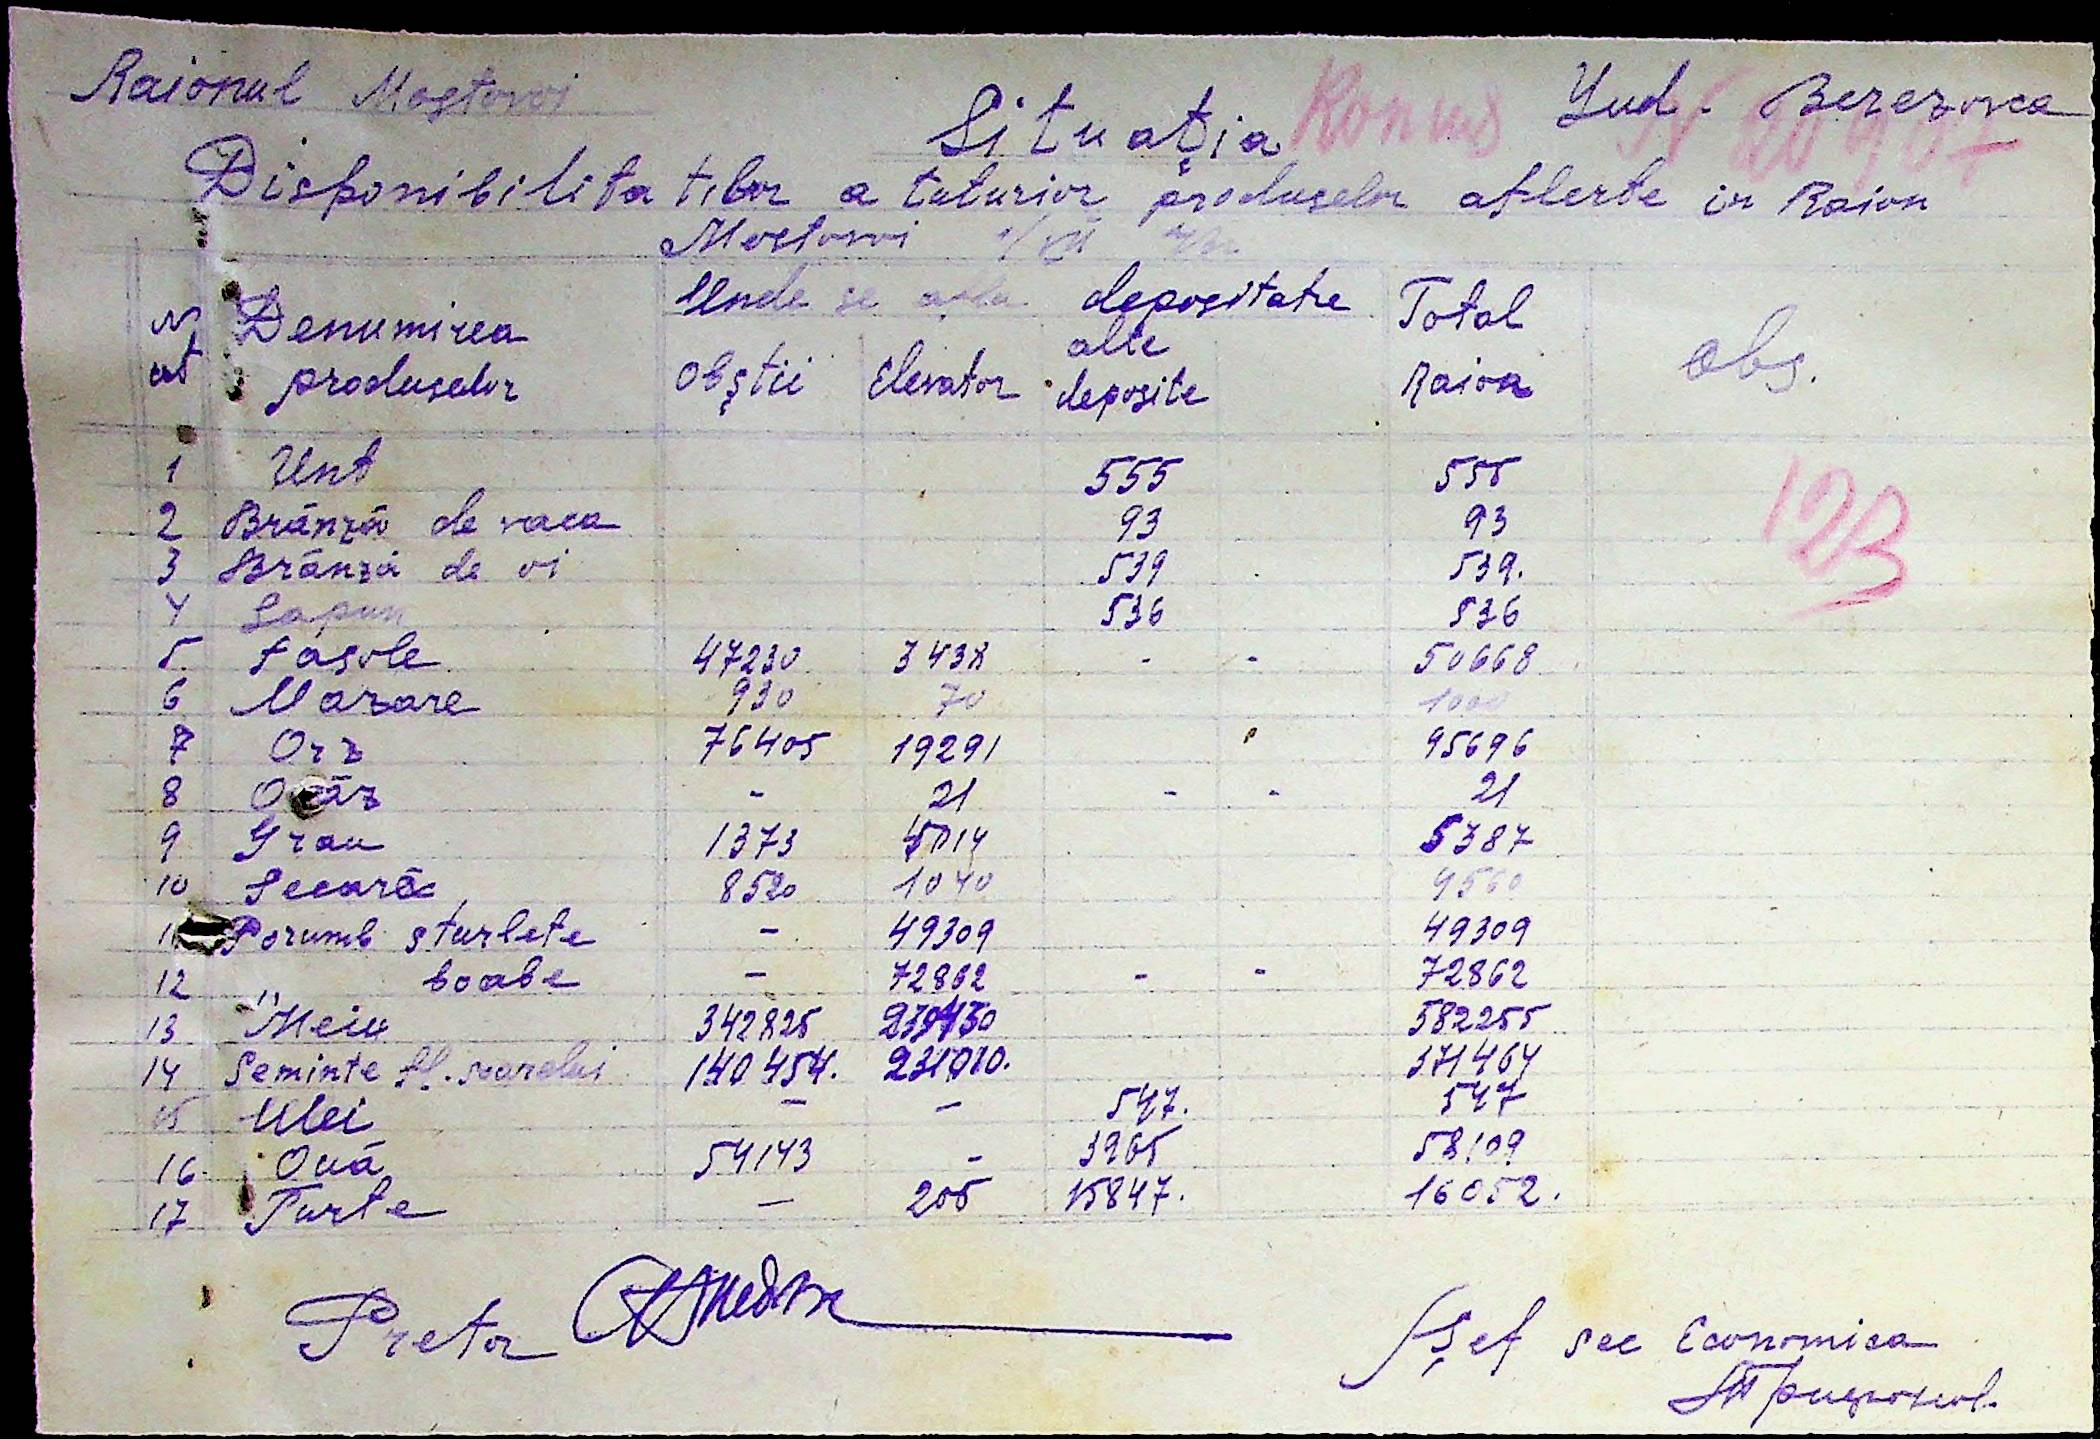 Raionul Mostovoi
Jud. Berezovca
Situaţia
Disponibilitatilor a tuturior produselor aflerte in Raion
Mostovoi 1/XII
N crt Denumirea produselor Unde se afla depozitate Total Raion Obs.
Obştii Elevator alte deposite
1 Unt 555 555
2 Brănză de vaca 93 93
3 Brănză de oi 539 539.
4 Sapun 536 536
5. Fasole 47230 3438 - - 50668
6 Mazare 930 70 1000
7 Orz 76405 19291 95696
8 Ovăz - 21 - - 21
9 Grau 1373 4014 5387
10 Secară 8520 1040 9560
11 Porumb sturlete - 49309 49309
12 ,, boabe - 72862 - - 72862
13 Meiu 342825 239430 582255
14 Seminte fl. soarelui 140454. 231010. 371464
15 Ulei - - 547. 547
16 Ouă 54143 - 3965 58109
17 Turte - 205 15847. 16052.
123
Pretor
Şef sec Economica